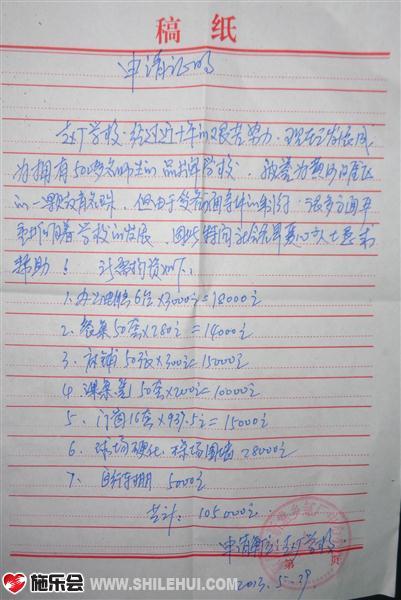 稿 纸
申请证明
学校,经过近十年的艰苦努力,现在已发展成
为拥有50多名师生的品牌学校,被誉为黄河
的一颗教育明珠,但由于受各方面条件的制约,很多方面严
重影响着学校的发展,因此特向社会各界爱心人士恳求
帮助!计器物资如下:
1.办公电脑6台×3000元=18000元
2.餐桌50套×280元=14000元
3.床铺50张×300元=15000元
4.课桌凳50套×200元=10000元
5.门窗16套×937.5元=15000元
6.球场硬化、操场围墙28000元
7.自行车棚5000元
共计:105000元
申请单位:学校
第 页
2013.5.
施乐会 WWW.SHILEHUI.COM